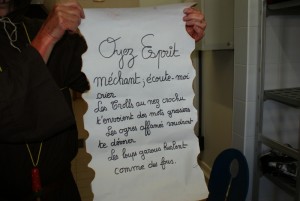 Oyez Esprit
méchant, écoute-moi
crier
Les Trolls au nez crochu
t'envoient des mots
Les ogres affamé voudront
te dévorer
Les loups garous hurlent
comme des fous.